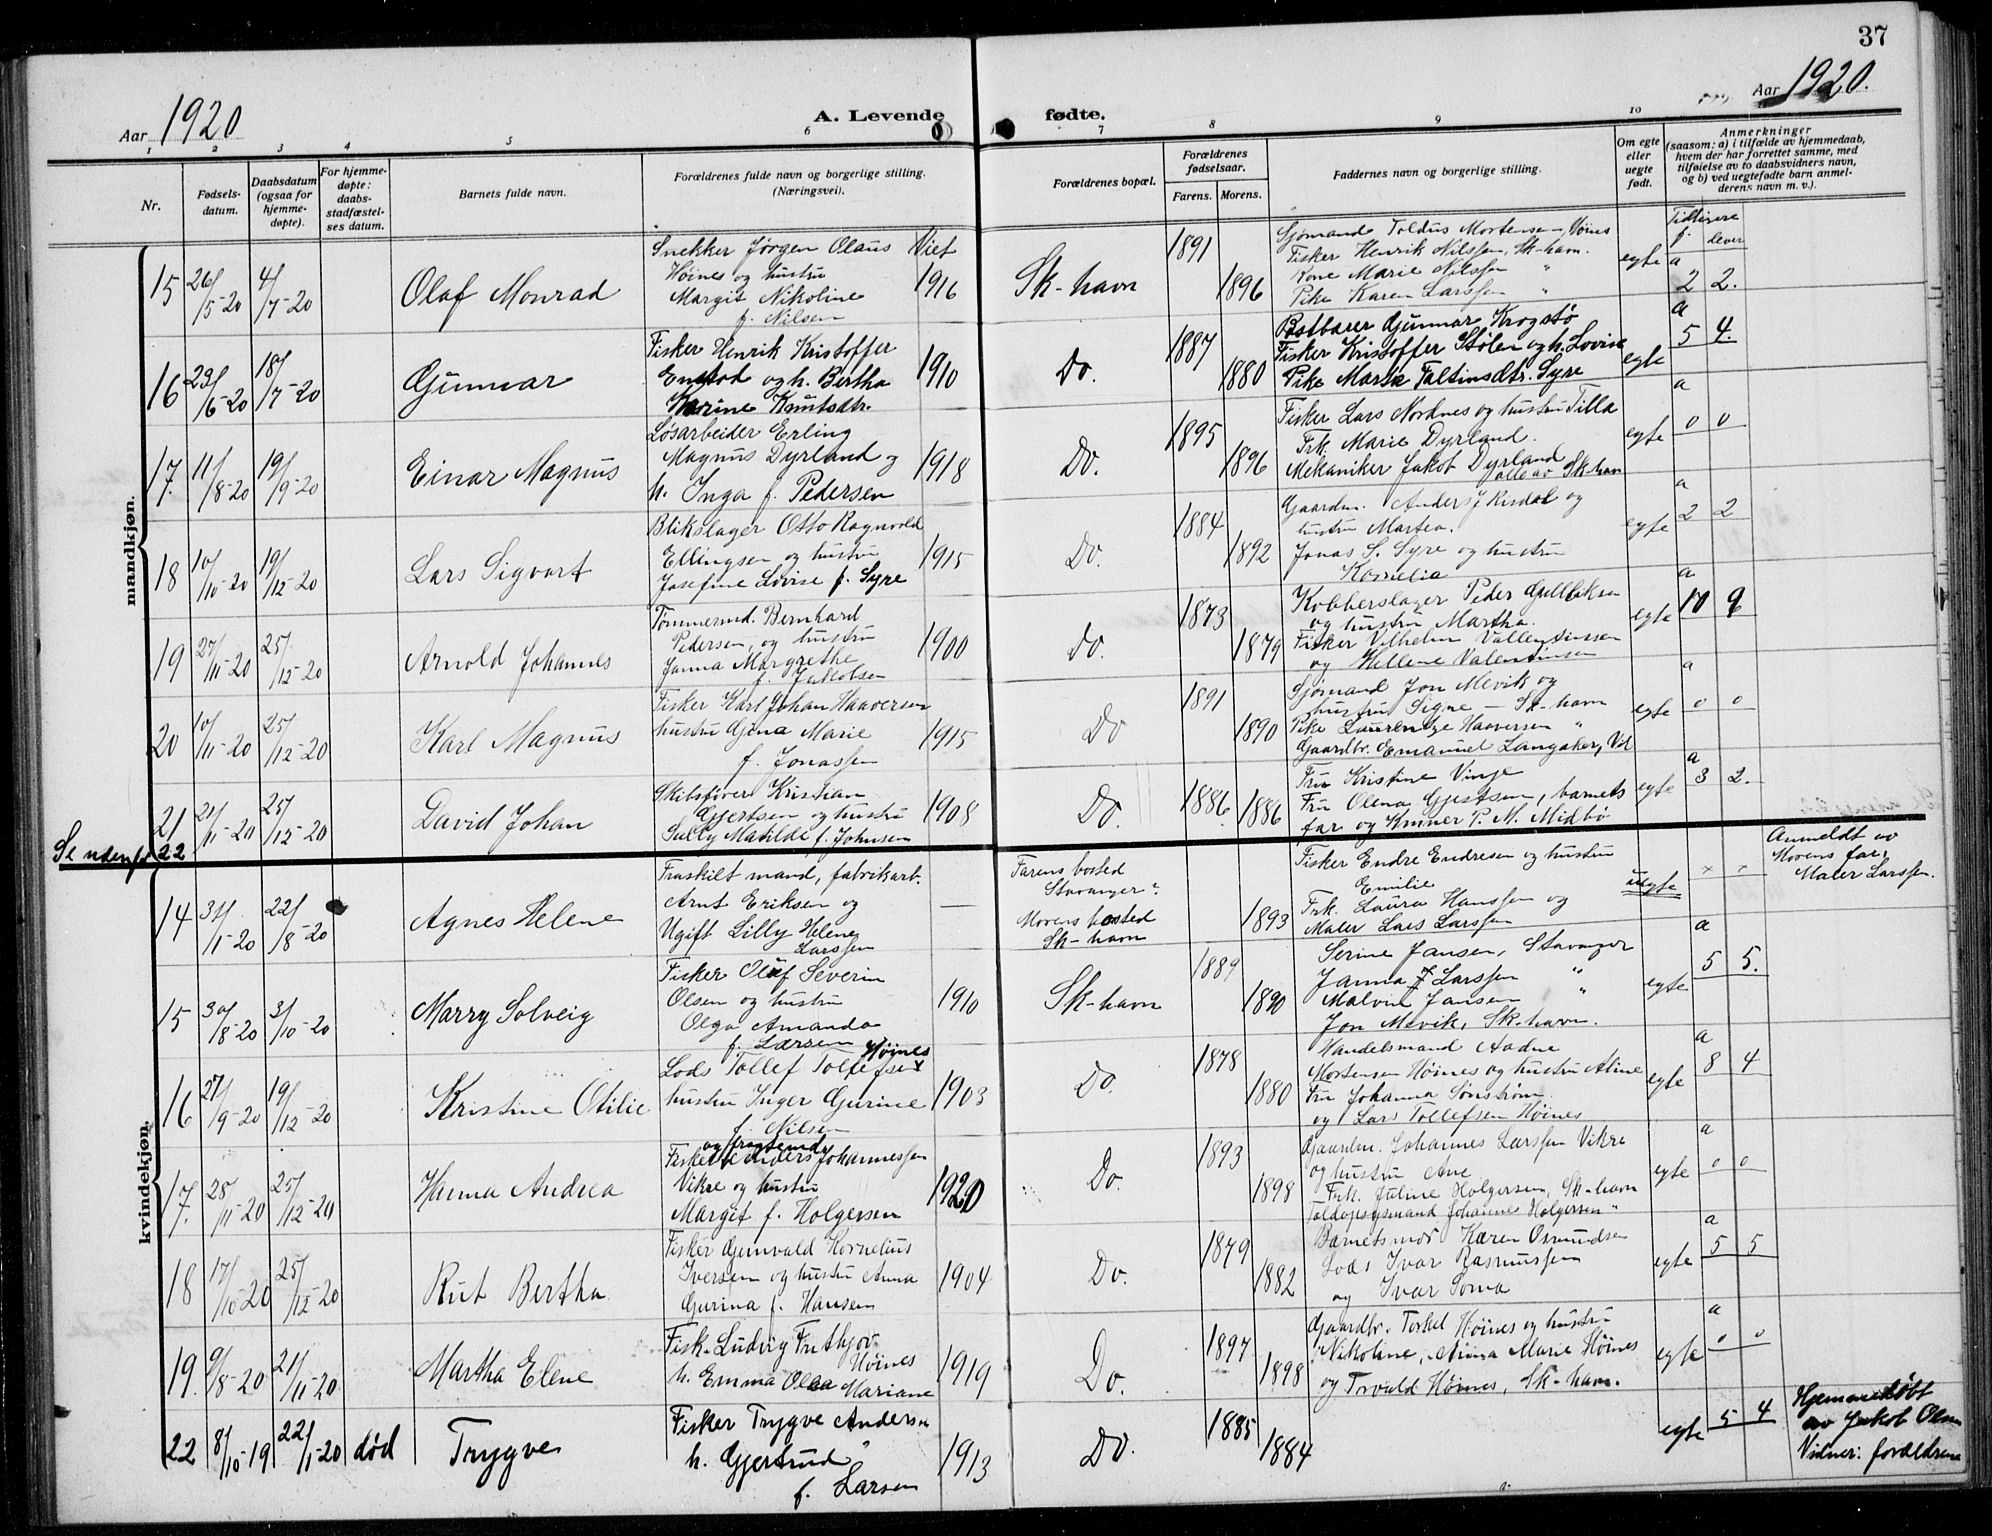 37
Aar 1920
A. Levende fødte.
Aar 1920.
1 2 3 4 5 6 7 8 9 10
Nr.
Fødsels-
datum.
Daabsdatum
(ogsaa for
hjemme-
døpte).
For hjemme-
døpte:
daabs-
stadfæstel-
ses datum.
Barnets fulde navn.
Forældrenes fulde navn og borgerlige stilling.
(Næringsvei).
Forældrenes bopæl.
Forældrenes
fødselsaar.
Farens. Morens.
Faddernes navn og borgerlige stilling.
Om egte
eller
uegte
født.
Anmerkninger
(saasom: a) i tilfælde av hjemmedaab,
hvem der har forrettet samme, med
tilføielse av to daabsvidners navn,
og b) ved uegtefødte barn anmel-
derens navn m. v.).
mandkjøn.
15 26/5-20 4/7-20 Olaf Monrad
Snekker Jørgen Olaus
Høines og hustru
Margit Nikoline
f. Nilsen
Viet
1916
Sk-havn
1891 1896
Sjømand Toldus Mortensen, Høines
Fisker Henrik Nilssen, Sk-havn.
Kone Marie Nilssen "
Pike Karen Larssen "
egte
Tidligere
f. lever
a
2 2.
16 23/6-20 18/7-20 Gunnar
Fisker Henrik Kristoffer
Enstod og h. Bertha
Karine Knutsdtr.
1910
Do.
1887 1880
Postbærer Gunnar Krogstø
Fisker Kristoffer Stølen og h. Lovise
Pike Marie Taltinsdtr. Syre
egte
a
5 4.
17. 11/8-20 19/9-20 Einar Magnus
Løsarbeider Erling
Magnus Dyrland og
h. Inga f. Pedersen
1918
Do.
1895 1896
Fisker Lars Nordnes og hustru Tilla
Frk. Marie Dyrland.
Mekaniker Jakob Dyrland
alle av Sk-havn
egte
a
0 0
18 10/10-20 19/12-20 Lars Sigvart
Blikslager Otto Ragnvald
Ellingsen og hustru
Josefine Lovise f. Syre
1915
Do.
1884 1892
Gaardm. Anders J Risdal og
hustru Martea.
Jonas S. Syre og hustru
Kornelia
egte
a
2 2
19 27/11-20 25/12-20 Arnold Johannes
Tømmermd. Bernhard
Pedersen, og hustru
Janna Margrethe
f. Jakobsen
1900
Do.
1873 1879
Kobberslager Peder Gulliksen
og hustru Martha.
Fisker Vilhelm Vallentinssen
og Hellene Valentinsen
egte
a
10 9
20 10/11-20 25/12-20 Karl Magnus
Fisker Karl Johan Haaversen
hustru Gjena Marie
f. Jonassen
1915
Do
1891 1890
Sjømand Jon Mevik og
hustru Signe — Sk-havn
Pike Laurentze Haaversen "
Gaardbr. Emanuel Langaker, Vik
egte
a
0 0
21 21/11-20 25/12-20 David Johan
Skibsfører Kristian
Gjertsen og hustru
Sully Matilde f. Johnsen
1908
Do.
1886 1886
Fru Kristine Vinje
Fru Olena Gjertsen, barnets
far og Kmner P. M. Midbø
egte
a
3 2.
Se nedenfor 22
kvindekjøn.
14 31/1-20 22/8-20 Agnes Helene
Fraskilt mand, fabrikarb.
Arnt Eriksen og
Ugift Lilly Helene
Larssen
—
Farens bosted
Stavanger?
Morens bosted
Sk-havn
1893
Fisker Endre Endresen og hustru
Emilie
Frk. Laura Hanssen og
Maler Lars Larssen
uegte
× ×
Anmeldt av
Morens far,
Maler Larssen.
15 30/8-20 3/10-20 Marry Solveig
Fisker Oluf Severin
Olsen og hustru
Olga Amanda
f. Larsen
1910
Sk-havn
1889 1890
Serine Jansen, Stavanger
Janna J Larssen "
Malvin Jansen "
Jon Mevik, Sk-havn.
egte
a
5 5.
16 27/9-20 19/12-20 Kristine Otilie
Lods Tollef Tollefsen Høines
hustru Inger Gurine
f. Nilsen
1903
Do.
1878 1880
Handelsmand Aadne
Mortensen Høines og hustru Aline
Fru Johanna Sønstrøm
og Lars Tollefsen Høines
egte
a
8 4
17. 25/11-20 25/12-20 Hanna Andrea
Fisker Anders Johannessen
Vikre og hustru
Margit f. Holgersen
1920
Do.
1893 1898
Gaardm. Johannes Larssen Vikre
og hustru Ane
Frk. Juline Holgersen, Sk-havn
Toldopsynsmand Johannes Holgersen "
egte
a
0 0
18 17/10-20 25/12-20 Rut Bertha
Fisker Gunvald Kornelius
Iversen og hustru Anna
Gurina f. Hansen
1904
Do.
1879 1882
Barnets mor Karen Osmundsen
Lods Ivar Rasmussen
og Ivar Soma
egte
a
5 5
19. 9/8-20 21/11-20 Martha Elene
Fisk. Ludvig Frithjov
Høines
h. Emma Olea Mariane
1919
Do.
1897 1898
Gaardbr. Torkel Høines og hustru
Nikoline, Anna Marie Høines
og Trvald Høines, Sk-havn.
egte
a
0 0
22 8/10-19 22/1-20 død Trygve
Fisker Trygve Andersen
h. Gjertrud
f. Larsen
1913
Do.
1885 1884
egte
5 4
Hjemmedøbt
av Jakob Olsen
Vidner: forældrene